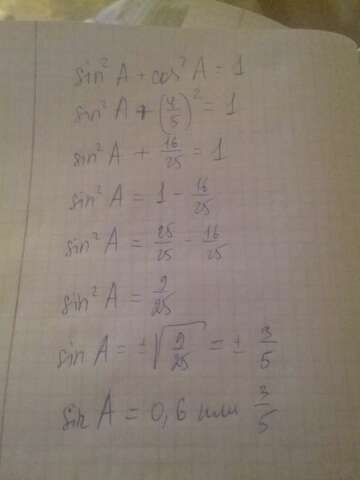 sin² A + cos² A = 1
sin² A + (4/5)² = 1
sin² A + 16/25 = 1
sin² A = 1 - 16/25
sin² A = 25/25 - 16/25
sin² A = 9/25
sin A = ±√(9/25) = ± 3/5
sin A = 0,6 или 3/5